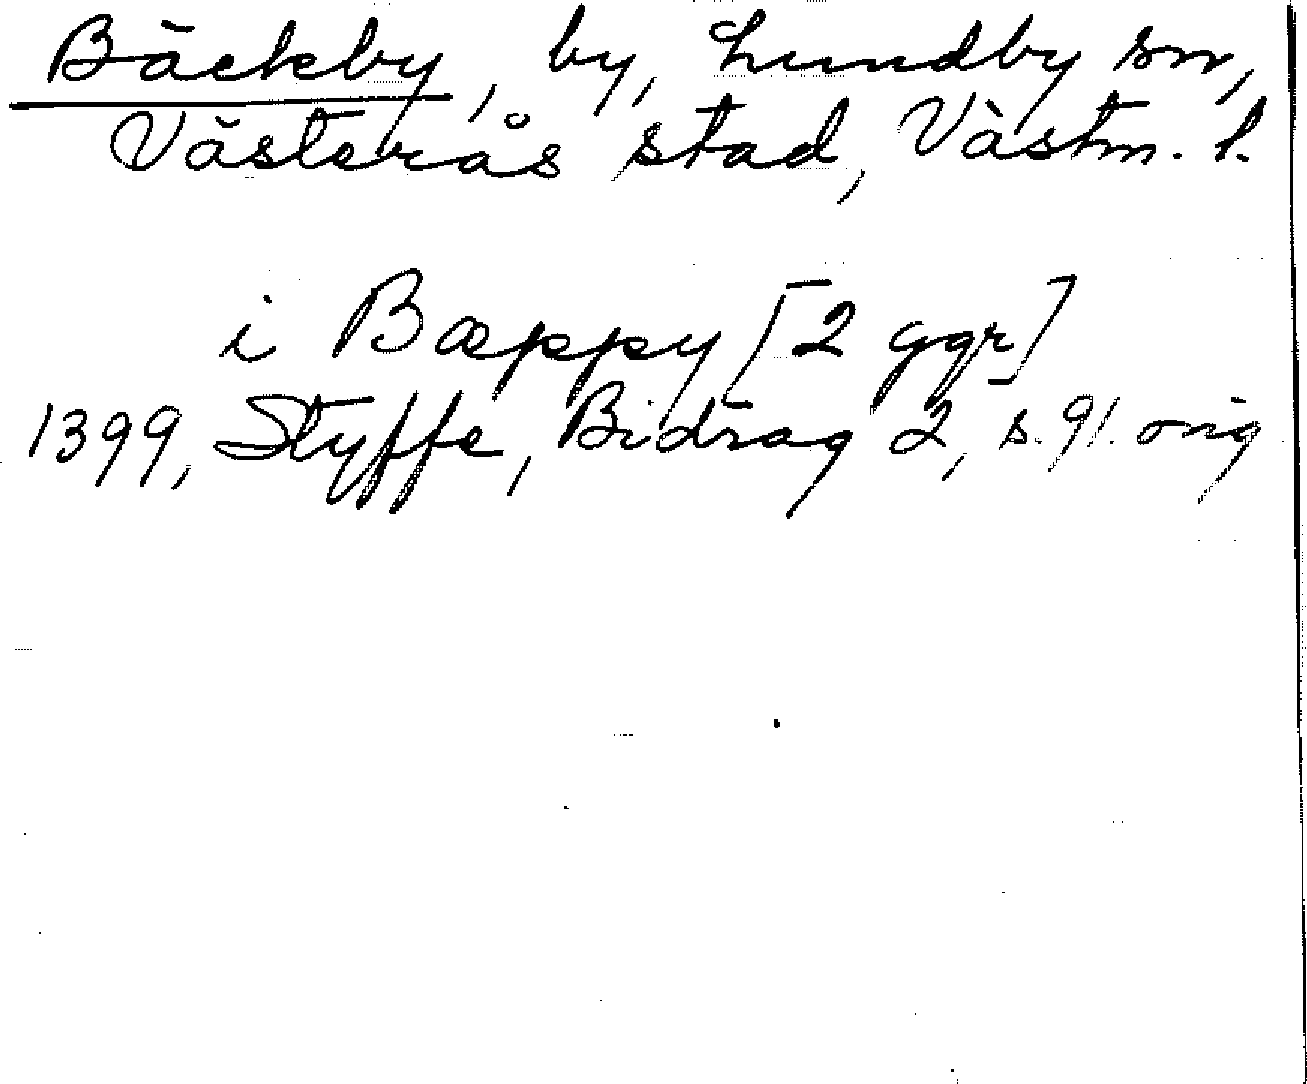 Bäckby, by, Lundby sn,
Västerås stad, Västm. l.
i Bæppy [2 ggr]
1399, Styffe, Bidrag 2, s. 91. orig